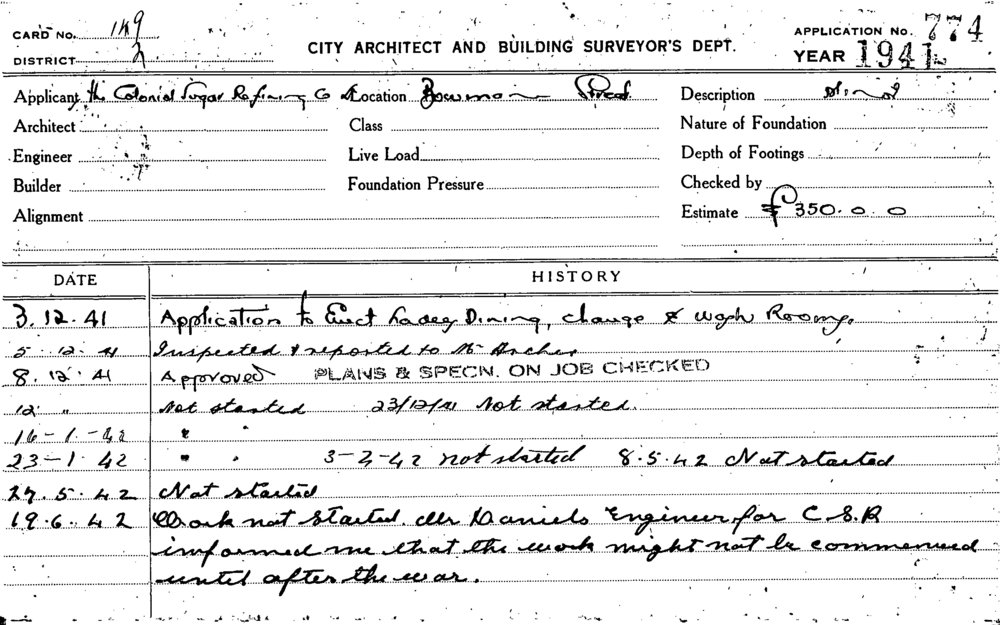 CARD No. 1K9
DISTRICT 2
CITY ARCHITECT AND BUILDING SURVEYOR'S DEPT.
APPLICATION No. 774
YEAR 1941
Applicant The Colonial Sugar Refining Co Location Bowman Street Description
Architect Class Nature of Foundation
Engineer Live Load Depth of Footings
Builder Foundation Pressure Checked by
Alignment Estimate £350.0.0
DATE HISTORY
3.12.41 Application to Erect Ladies Dining, change & Wash Rooms.
5.12.41 Inspected & reported to Mr Archer
8.12.41 Approved PLANS & SPECN. ON JOB CHECKED
12 " Not started 23/12/41 Not started.
16-1-42 " "
23-1-42 " " 3-2-42 not started 8.5.42 Not started
27.5.42 Not started
19.6.42 Work not started. Mr Daniels Engineer for C.S.R
informed me that the work might not be commenced
until after the war.